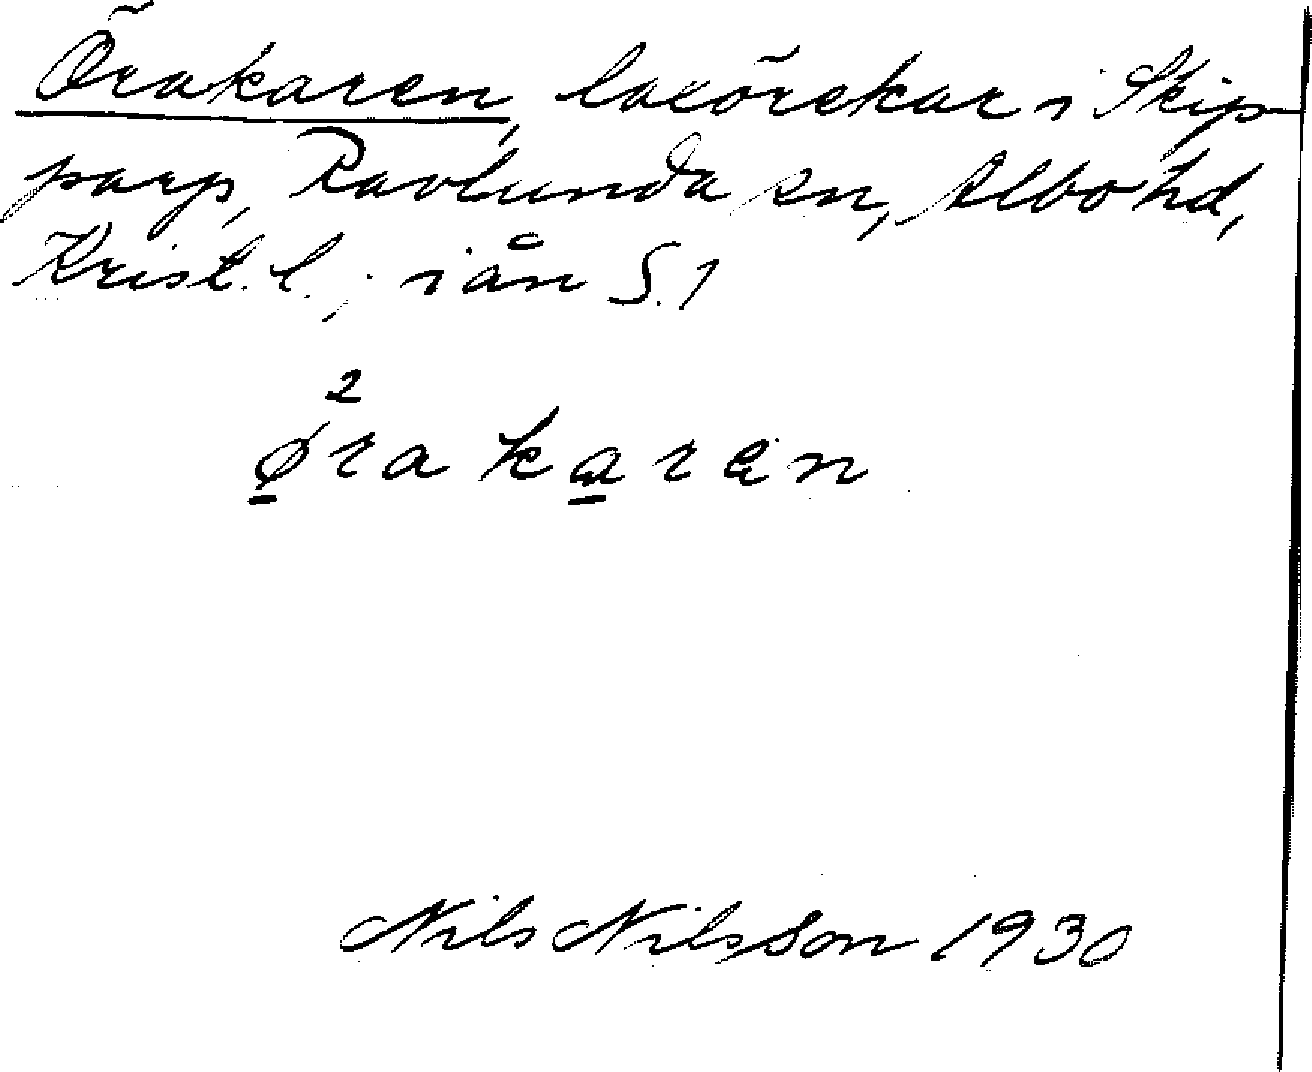 Örakaren, laxörekar i Skip-
parp, Ravlunda sn, Albo hd,
Krist. l.; i ån S. 1
2
ø̱raka̱ren
Nils Nilsson 1930